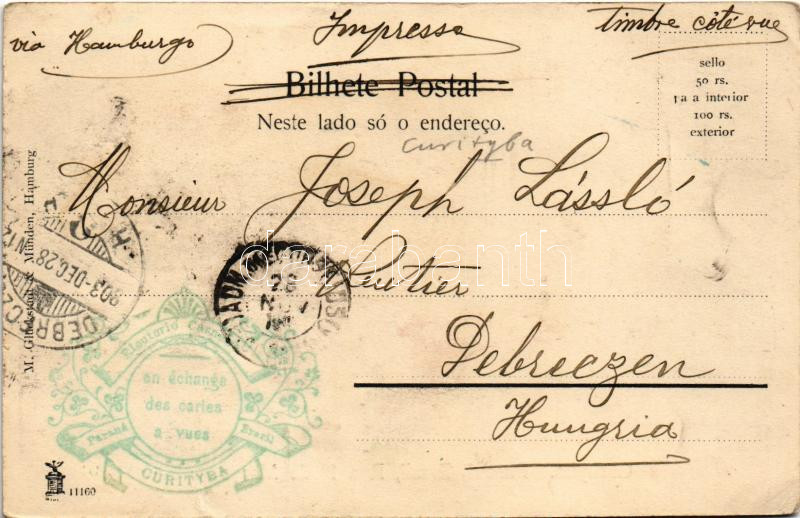 via Hamburgo
Impresso
timbre côté vue
Bilhete Postal
Neste lado só o endereço.
sello
50 rs.
pa a interior
100 rs.
exterior
Curityba
Monsieur Joseph László
Rentier
Debreczen
Hungria
M. Glückstadt & Münden, Hamburg
DEBRECZ
903 DEC. 28
26
NOV
Eleuterio
en échange
des cartes
à vues
Paraná
Brazil
CURITYBA
11160
darabanth